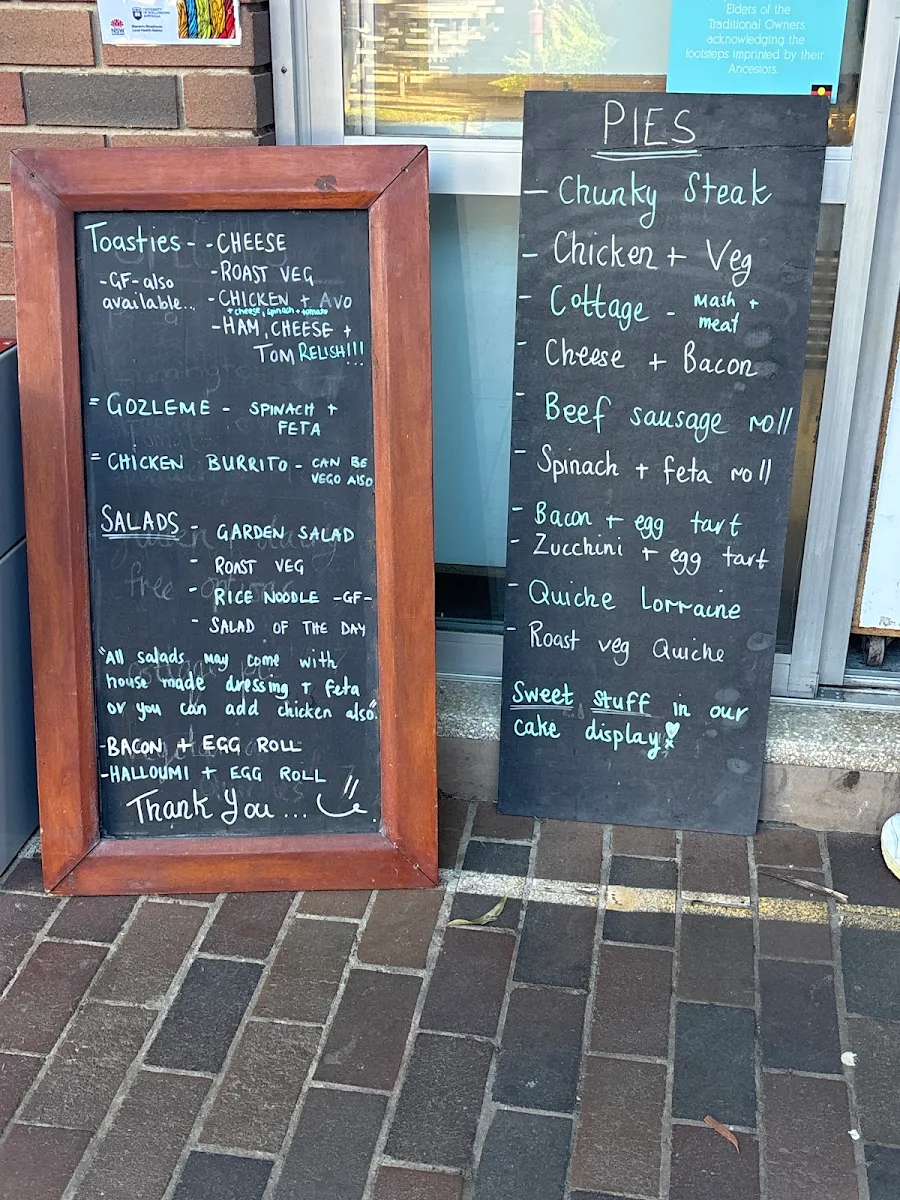 UNIVERSITY OF WOLLONGONG AUSTRALIA
NSW
Elders of the
Traditional Owners,
acknowledging the
footsteps imprinted by their
Ancestors.
Toasties - - CHEESE
-GF-also
available...
- ROAST VEG
- CHICKEN + AVO
+ cheese, spinach + tomato
- HAM, CHEESE +
TOM RELISH!!!
= GOZLEME - SPINACH +
FETA
= CHICKEN BURRITO - CAN BE
VEGO ALSO
SALADS - GARDEN SALAD
- ROAST VEG
- RICE NOODLE -GF-
- SALAD OF THE DAY
"All salads may come with
house made dressing + feta
or you can add chicken also".
-BACON + EGG ROLL
-HALLOUMI + EGG ROLL
Thank You...
PIES
- Chunky Steak
- Chicken + Veg
- Cottage - Mash +
meat
- Cheese + Bacon
- Beef sausage roll
- Spinach + feta roll
- Bacon + egg tart
- Zucchini + egg tart
- Quiche Lorraine
- Roast veg Quiche
Sweet stuff in our
cake display!